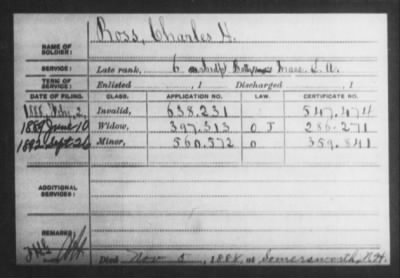 Ross, Charles H.
NAME OF SOLDIER:
SERVICE: Late rank, 6 Batty Mass. L. A.
TERM OF SERVICE: Enlisted , 1 Discharged , 1
DATE OF FILING. CLASS. APPLICATION NO. LAW. CERTIFICATE NO.
1888, July 2, Invalid, 658.231 547.474
1889 June 10 Widow, 397.513 O J 286.271
1892 Sept 26 Minor, 560.372 O 359.841
ADDITIONAL SERVICES:
REMARKS:
Died Nov 5, 1888, at Somersworth, N.H.